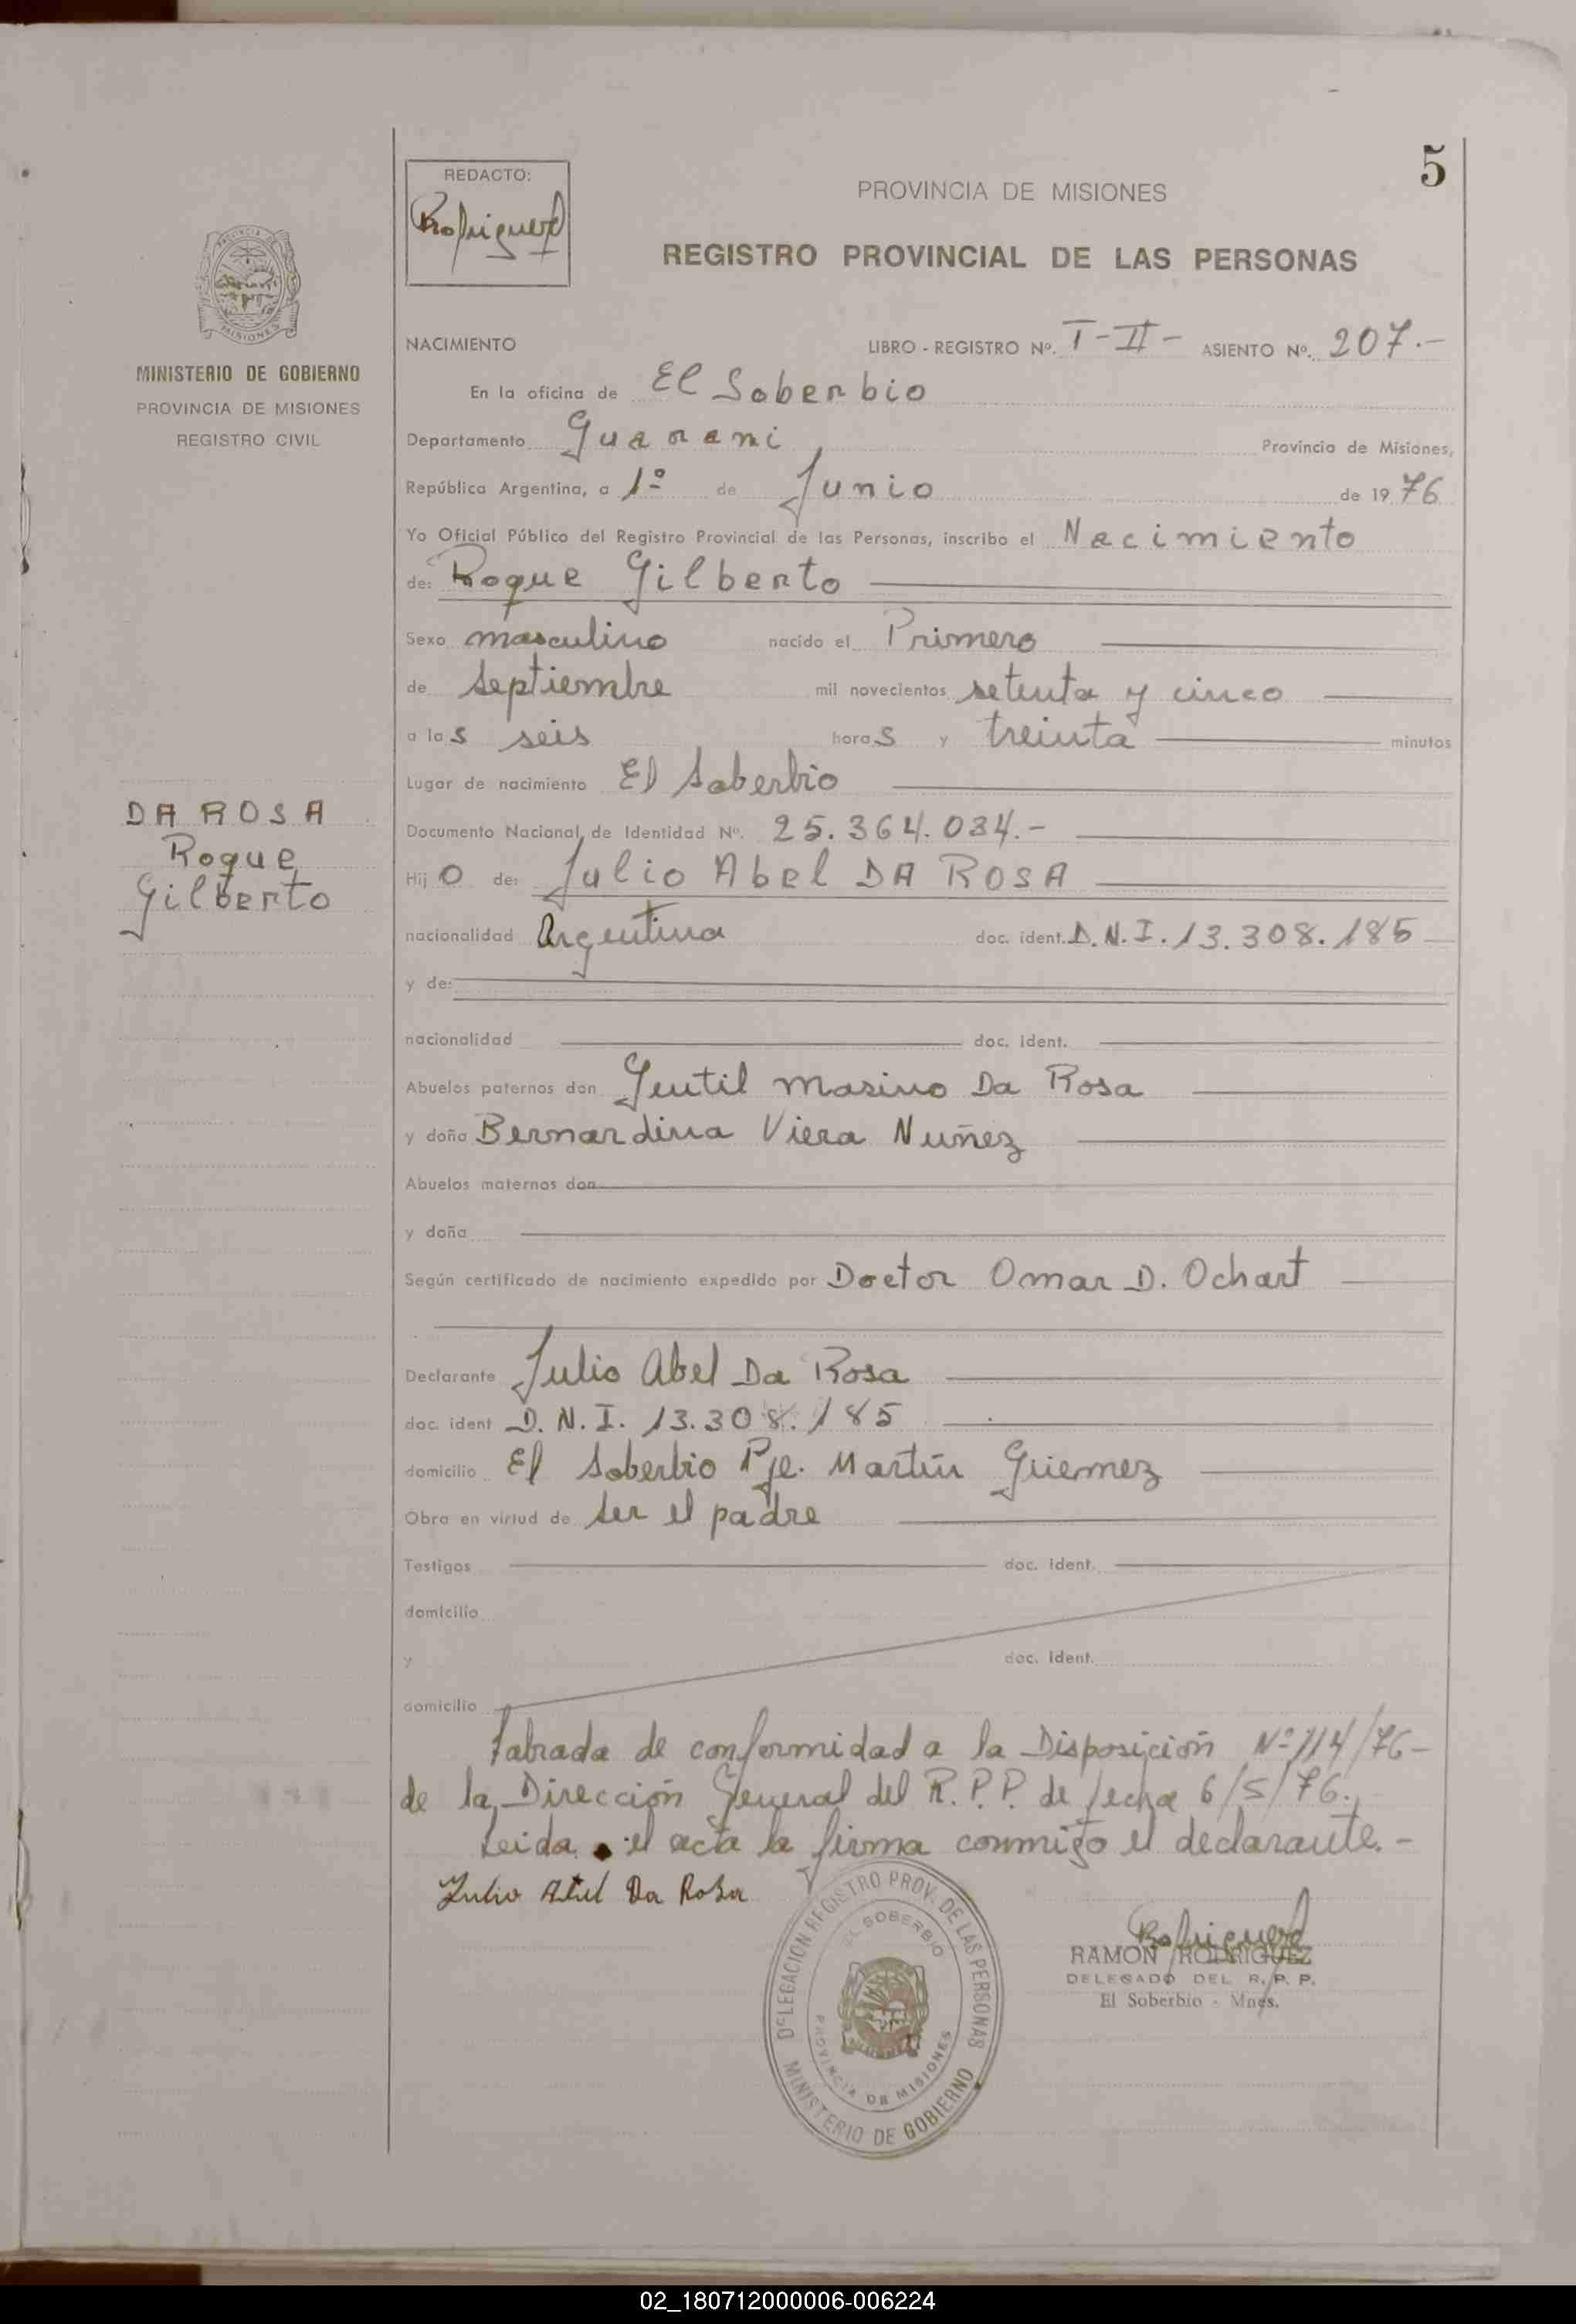 5
REDACTO:
Rodriguez
PROVINCIA DE MISIONES
REGISTRO PROVINCIAL DE LAS PERSONAS
MISIONES
MINISTERIO DE GOBIERNO
PROVINCIA DE MISIONES
REGISTRO CIVIL
NACIMIENTO LIBRO - REGISTRO Nº. I-II- ASIENTO Nº. 207.-
En la oficina de El Soberbio
Departamento Guarani Provincia de Misiones,
República Argentina, a 1º de Junio de 1976
Yo Oficial Público del Registro Provincial de las Personas, inscribo el Nacimiento
de: Roque Gilberto
Sexo masculino nacido el Primero
de septiembre mil novecientos setenta y cinco
a las seis horas y treinta minutos
Lugar de nacimiento El Soberbio
DA ROSA
Roque
Gilberto
Documento Nacional de Identidad Nº. 25.364.034.-
Hijo de: Julio Abel DA ROSA
nacionalidad Argentina doc. ident. D.N.I. 13.308.185
y de:
nacionalidad doc. ident.
Abuelos paternos don Gentil Marino Da Rosa
y doña Bernardina Viera Nuñez
Abuelos maternos don
y doña
Según certificado de nacimiento expedido por Doctor Omar D. Ochart
Declarante Julio Abel Da Rosa
doc. ident D.N.I. 13.308.185
domicilio El Soberbio Pje. Martín Güemez
Obra en virtud de ser el padre
Testigos doc. ident.
domicilio
y doc. ident.
domicilio
Labrada de conformidad a la Disposición Nº 114/76-
de la Dirección General del R.P.P. de fecha 6/5/76.
Leida el acta la firma conmigo el declarante.-
Julio Abel Da Rosa
DELEGACION REGISTRO PROV. DE LAS PERSONAS
EL SOBERBIO
PROVINCIA DE MISIONES
MINISTERIO DE GOBIERNO
Rodriguez
RAMON RODRIGUEZ
DELEGADO DEL R. P. P.
El Soberbio - Mnes.
02_180712000006-006224